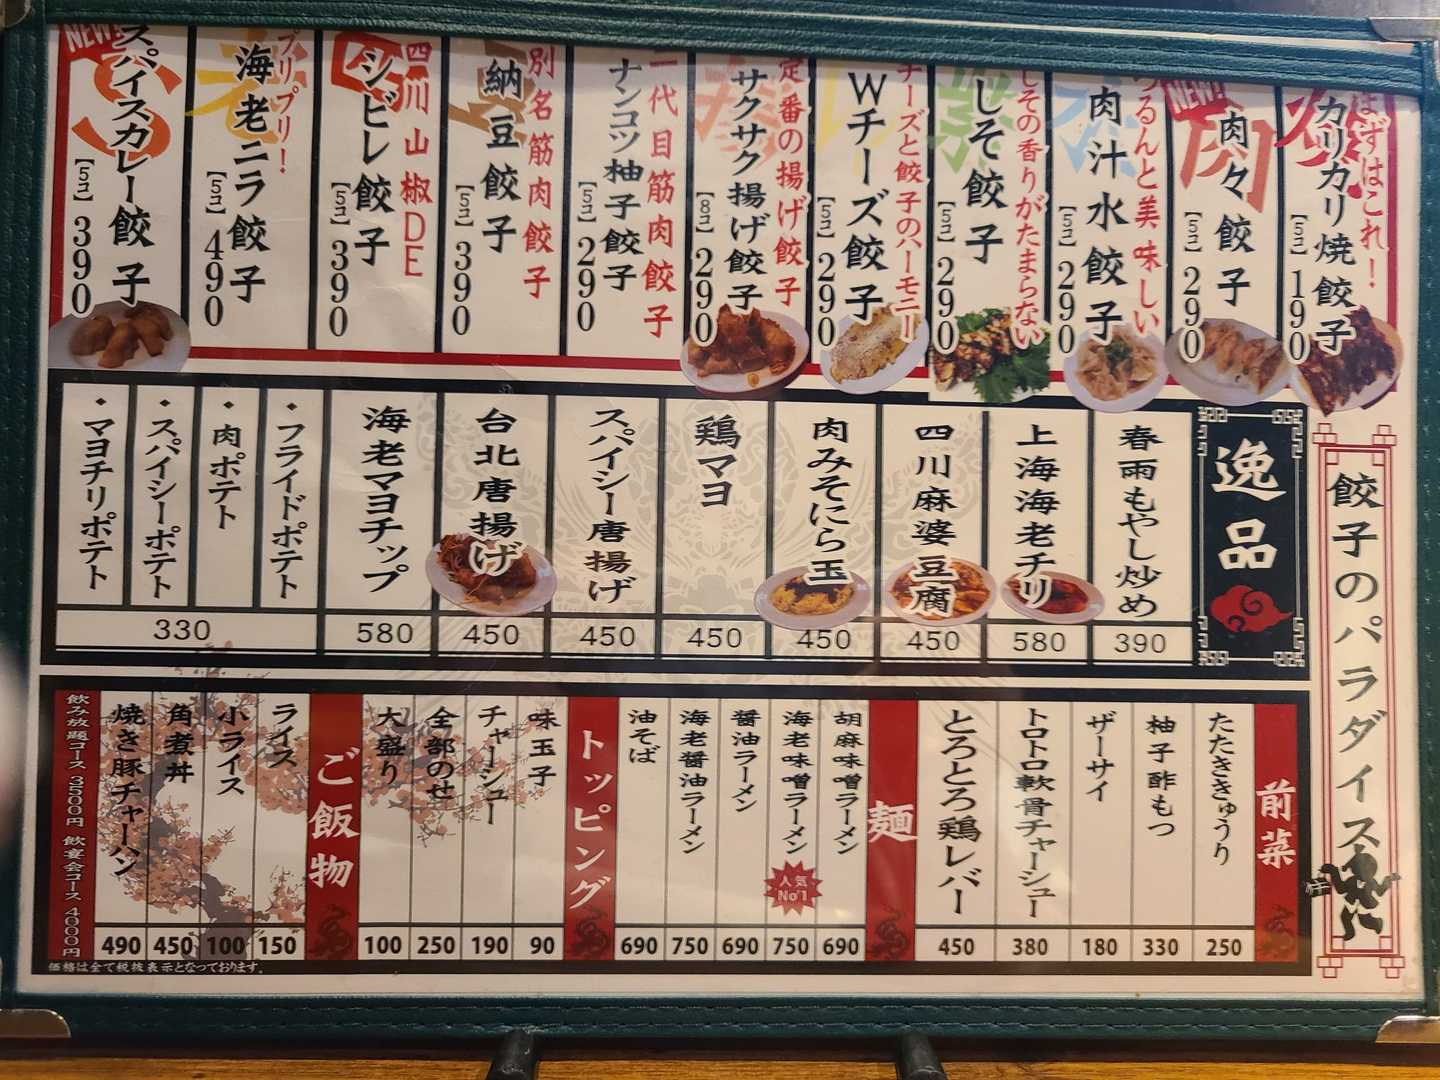 餃子のパラダイス
まずはこれ！
カリカリ焼餃子
［5コ］190
NEW!
肉
肉々餃子
［5コ］290
つるんと美味しい
肉汁水餃子
［5コ］290
しその香りがたまらない
しそ餃子
［5コ］290
チーズと餃子のハーモニー
Wチーズ餃子
［5コ］290
定番の揚げ餃子
サクサク揚げ餃子
［8コ］290
二代目筋肉餃子
ナンコツ柚子餃子
［5コ］290
別名筋肉餃子
納豆餃子
［5コ］390
四川山椒DE
シビレ餃子
［5コ］390
プリプリ！
海老ニラ餃子
［5コ］490
NEW!
スパイスカレー餃子
［5コ］390
逸品
春雨もやし炒め
390
上海海老チリ
580
四川麻婆豆腐
450
肉みそにら玉
450
鶏マヨ
450
スパイシー唐揚げ
450
台北唐揚げ
450
海老マヨチップ
580
・フライドポテト
・肉ポテト
・スパイシーポテト
・マヨチリポテト
330
前菜
たたききゅうり
250
柚子酢もつ
330
ザーサイ
180
トロトロ軟骨チャーシュー
380
とろとろ鶏レバー
450
麺
胡麻味噌ラーメン
690
海老味噌ラーメン
人気
No'1
750
醤油ラーメン
690
海老醤油ラーメン
750
油そば
690
トッピング
味玉子
90
チャーシュー
190
全部のせ
250
大盛り
100
ご飯物
ライス
150
小ライス
100
角煮丼
450
焼き豚チャーハン
490
飲み放題コース 3500円 飲宴会コース 4000円
価格は全て税抜表示となっております。